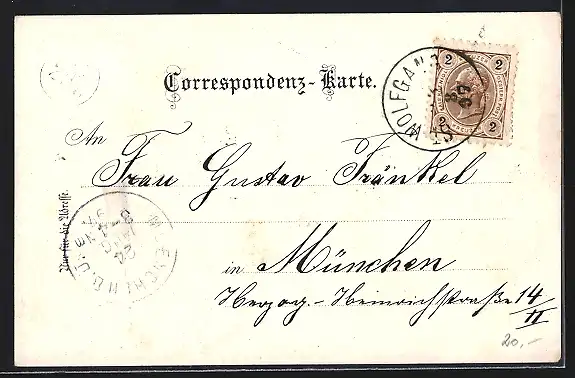 Correspondenz-Karte.
2 2
WOLFGANG
2 2
An
Frau Gustav Fränkel
Nur für die Adresse.
in München
Herzog-Heinrichstraße 14/II
MUENCHEN
20,-